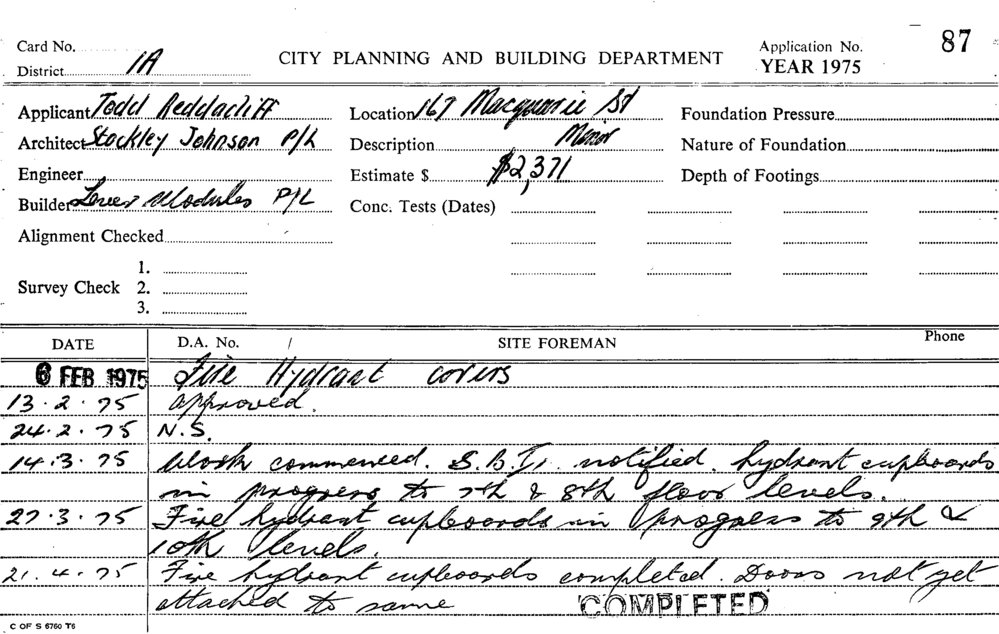 Card No.
District 1A
CITY PLANNING AND BUILDING DEPARTMENT
Application No. 87
YEAR 1975
Applicant Todd Reddacliff
Location 167 Macquarie St
Foundation Pressure
Architect Stockley Johnson P/L
Description Minor
Nature of Foundation
Engineer
Estimate $ $2,371
Depth of Footings
Builder Modules P/L
Conc. Tests (Dates)
Alignment Checked
Survey Check 1.
2.
3.
DATE D.A. No. / SITE FOREMAN Phone
6 FEB 1975 Fire Hydrant covers
13.2.75 approved.
24.2.75 N.S.
14.3.75 Work commenced. S.B.I. notified. hydrant cupboards
in progress to 7th & 8th floor levels.
27.3.75 Fire hydrant cupboards in progress to 9th &
10th levels.
21.4.75 Fire hydrant cupboards completed. Doors not yet
attached to same COMPLETED
C OF S 6760 T6